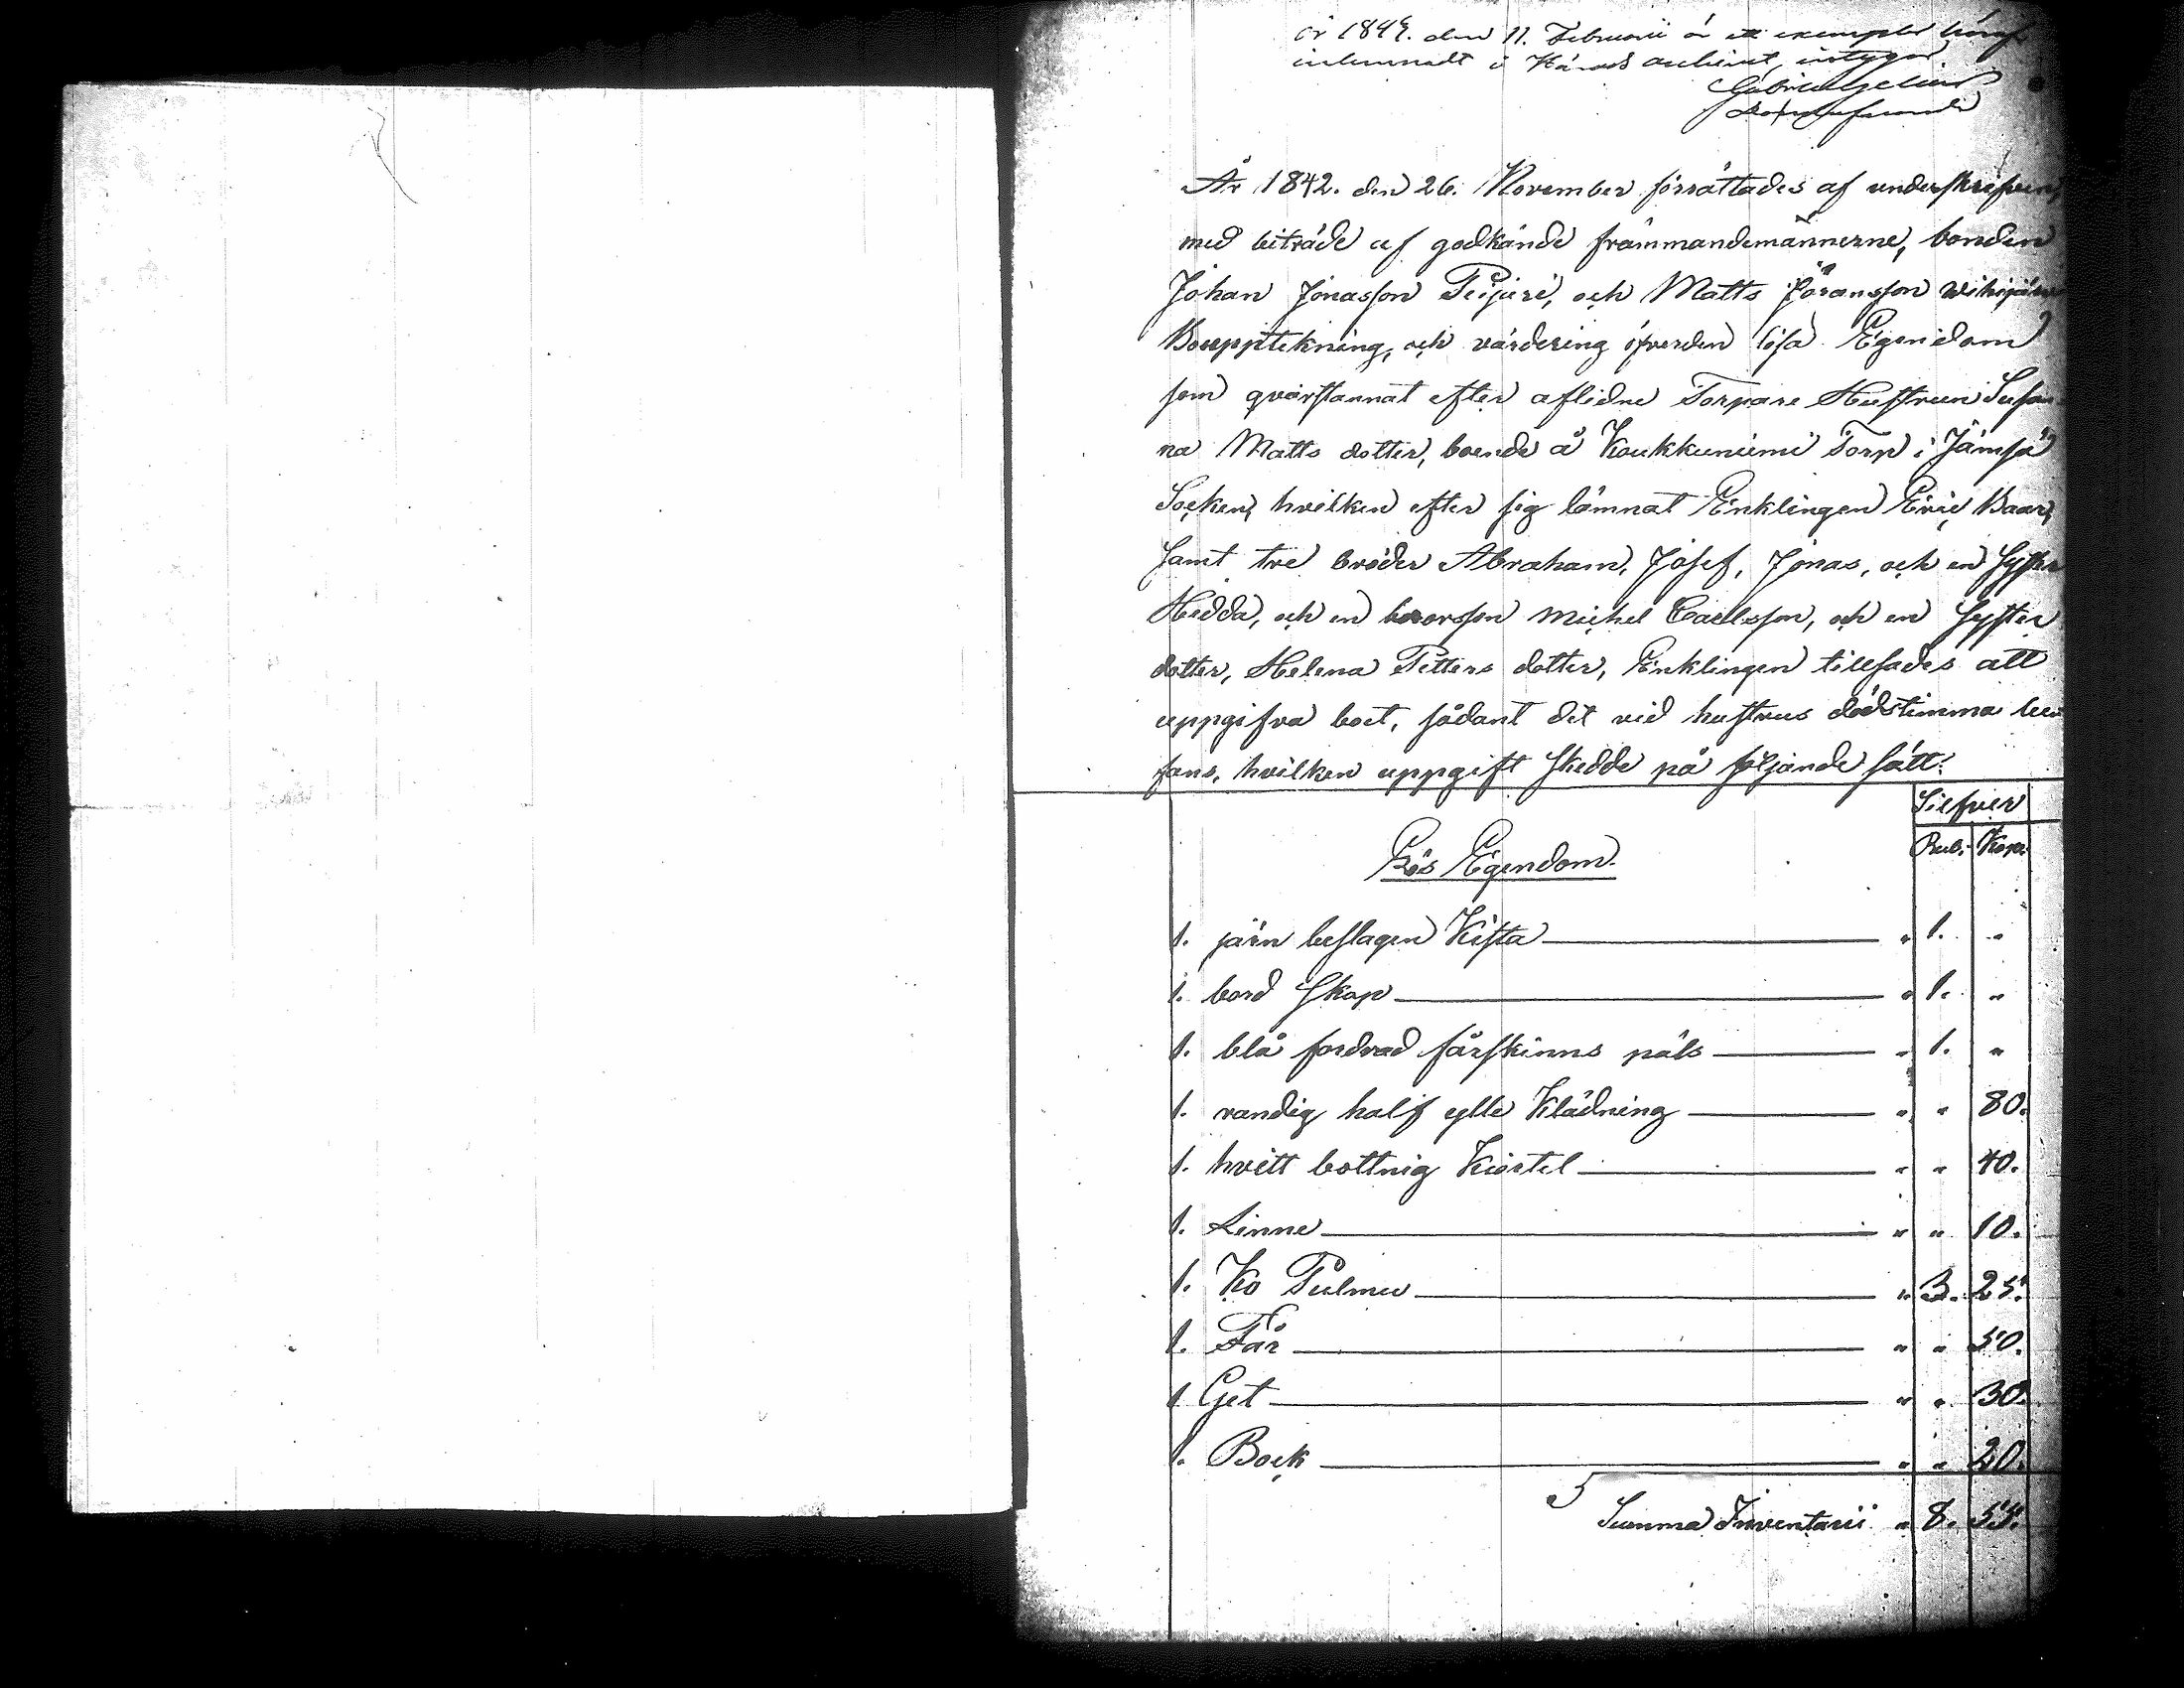 år 1844. den 11. Februarii är ett exemplar häraf
inlemnadt i Härads archivet, intygar
År 1842. den 26. November förrättades af underskrifven,
med biträde af godkände främmandemännerne, bonden
Johan Jonasson Peijari, och Matts Jöransson Wihijärvi
Bouppteknings, och värdering öfverden lösa Egendom
som qvarstannat efter aflidne Torpare Hustrun Susan-
na Matts dotter, boende å Koukkuniemi Torp i Jämsä
Socken, hvilken efter sig lämnat Enklingen Eric Baar,
samt tre bröder Abraham, Josef, Jonas, och en Syster
Hedda, och en brorsson Michel Carlsson, och en Syster
dotter, Helena Petters dotter, Enklingen tillsades att
uppgifva boet, sådant det vid hustrus dödstimma be-
fans, hvilken uppgift skedde på följande sätt:
Silfver
Rub. Kop.
Lös Egendom.
1. järn beslagen Kista " 1. "
1. bord Skap " 1. "
1. blå fordrad fårskinns päls " 1. "
1. randig half ylle Klädning " " 80.
1. hvitt bottnig Kiortel " " 40.
1. Linne " " 10.
1. Ko Pulmu " 3. 25.
1. Får " " 50.
1 Get " " 30.
1. Bock " " 20.
Summa Inventarii " 8. 55.